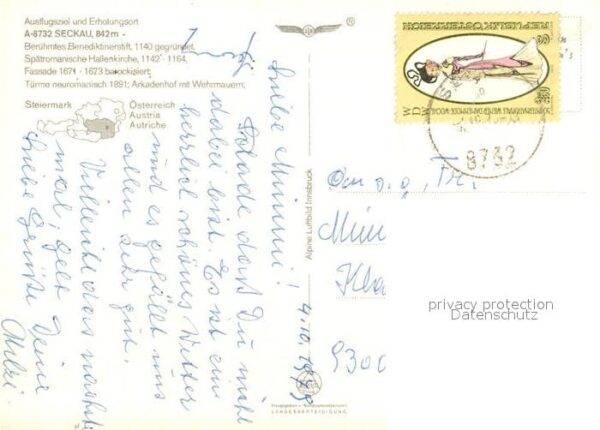 Ausflugsziel und Erholungsort
A-8732 SECKAU, 842 m -
Berühmtes Benediktinerstift, 1140 gegründet,
Spätromanische Hallenkirche, 1142 - 1164,
Fassade 1671 - 1673 barockisiert;
Türme neuromanisch 1891; Arkadenhof mit Wehrmauern;
Steiermark
Österreich
Austria
Autriche
Liebe Mimmi!
Schade daß Du nicht
dabei bist. Es ist ein
herrlich schönes Wetter
und es gefällt uns
allen sehr gut.
Vielleicht das nächste
mal, gelt
Liebe Grüße Deine
4.10.1979
Alpine Luftbild Innsbruck
REPUBLIK ÖSTERREICH
WDW
8732
930
LANDESVERTEIDIGUNG
privacy protection
Datenschutz
®